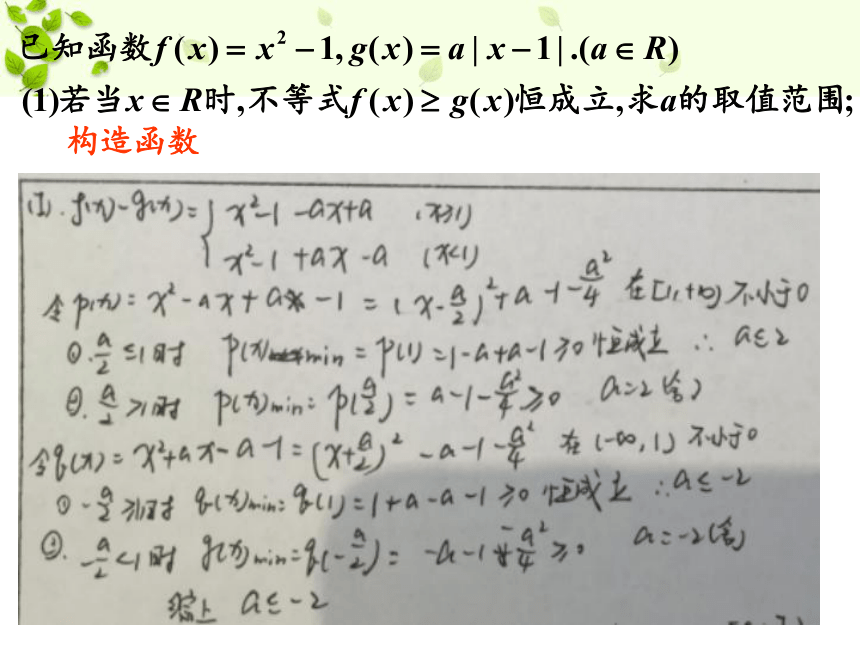 已知函数f(x)=x²-1,g(x)=a|x-1|.(a∈R)
(1)若当x∈R时,不等式f(x)≥g(x)恒成立,求a的取值范围;
构造函数
(1).f(x)-g(x)={ x²-1-ax+a (x≥1)
x²-1+ax-a (x<1)
令p(x)=x²-ax+a-1=(x-a/2)²+a-1-a²/4 在[1,+∞)不小于0
①.a/2≤1时 p(x)min=p(1)=1-a+a-1≥0恒成立 ∴a≤2
②.a/2>1时 p(x)min=p(a/2)=a-1-a²/4≥0 a=2(舍)
令q(x)=x²+ax-a-1=(x+a/2)²-a-1-a²/4 在(-∞,1)不小于0
①-a/2≥1时 q(x)min=q(1)=1+a-a-1≥0恒成立 ∴a≤-2
②.-a/2<1时 q(x)min=q(-a/2)=-a-1-a²/4≥0 a=-2(舍)
综上 a≤-2